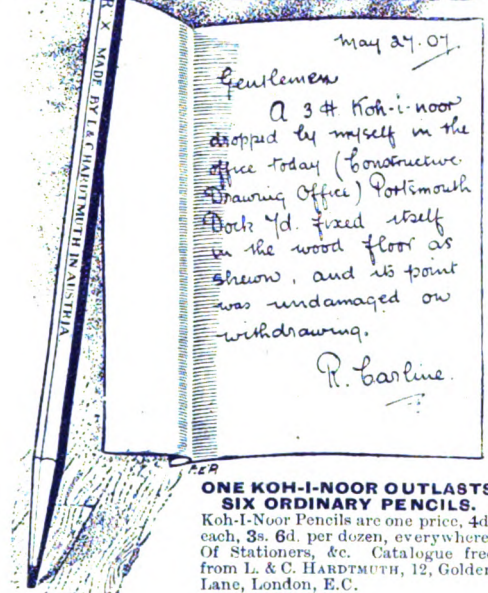 R X MADE BY L & C HARDTMUTH IN AUSTRIA
May 27. 07.
Gentlemen
A 3 H Koh-i-noor
dropped by myself in the
office today (Constructive
Drawing Office) Portsmouth
Dock Yd. fixed itself
in the wood floor as
shewn, and its point
was undamaged on
withdrawing.
R. Carline.
ONE KOH-I-NOOR OUTLASTS
SIX ORDINARY PENCILS.
Koh-I-Noor Pencils are one price, 4d
each, 3s. 6d. per dozen, everywhere
Of Stationers, &c. Catalogue free
from L. & C. HARDTMUTH, 12, Golden
Lane, London, E.C.